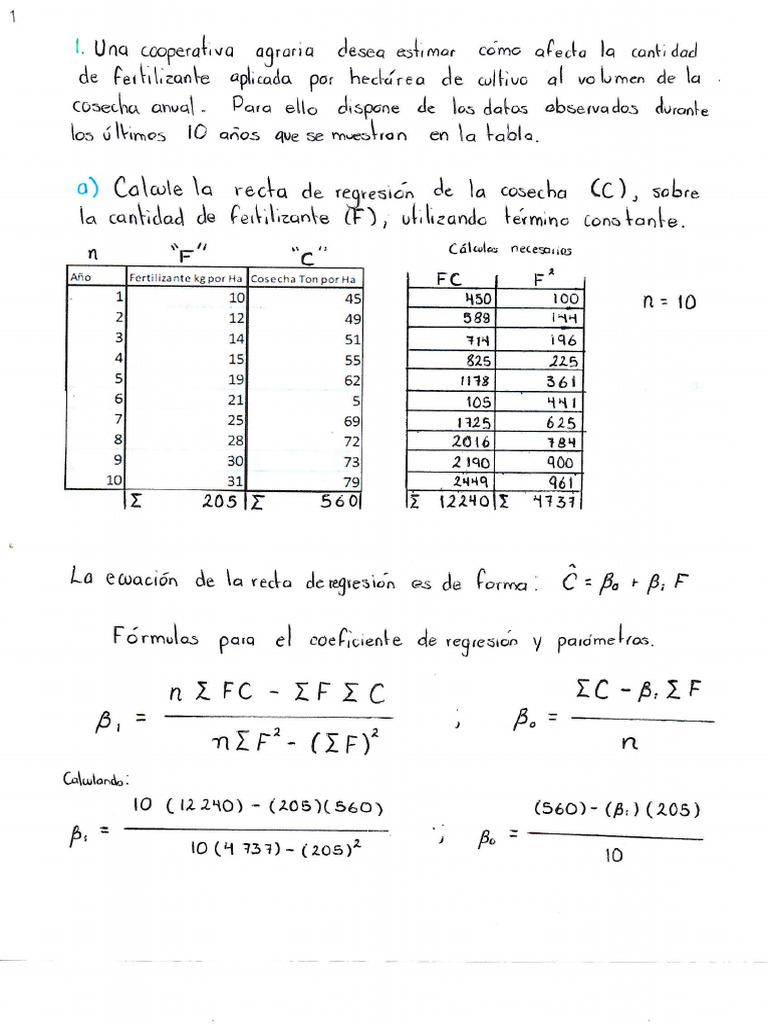 1
1. Una cooperativa agraria desea estimar cómo afecta la cantidad
de fertilizante aplicada por hectárea de cultivo al volumen de la
cosecha anual. Para ello dispone de los datos observados durante
los últimos 10 años que se muestran en la tabla.
a) Calcule la recta de regresión de la cosecha (C), sobre
la cantidad de fertilizante (F), utilizando término constante.
n "F" "C" Cálculos necesarios
Año Fertilizante kg por Ha Cosecha Ton por Ha FC F² n = 10
1 10 45 450 100
2 12 49 588 144
3 14 51 714 196
4 15 55 825 225
5 19 62 1178 361
6 21 5 105 441
7 25 69 1725 625
8 28 72 2016 784
9 30 73 2190 900
10 31 79 2449 961
Σ 205 Σ 560 Σ 12240 Σ 4737
La ecuación de la recta de regresión es de forma: Ĉ = β₀ + β₁ F
Fórmulas para el coeficiente de regresión y parámetros.
β₁ = (n Σ FC - Σ F Σ C) / (n Σ F² - (Σ F)²) ; β₀ = (Σ C - β₁ Σ F) / n
Calculando:
β₁ = (10 (12 240) - (205)(560)) / (10 (4 737) - (205)²) ; β₀ = ((560) - (β₁)(205)) / 10